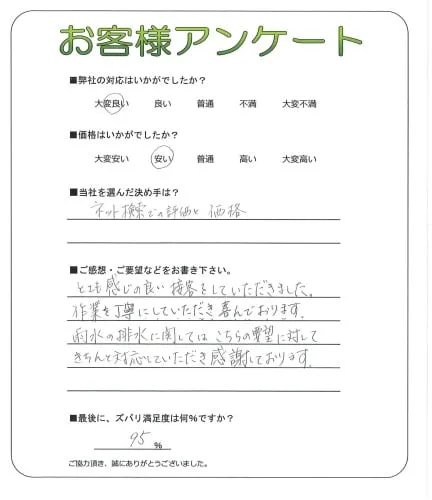 お客様アンケート
■弊社の対応はいかがでしたか？
大変良い 良い 普通 不満 大変不満
■価格はいかがでしたか？
大変安い 安い 普通 高い 大変高い
■当社を選んだ決め手は？
ネット検索での評価と 価格
■ご感想・ご要望などをお書き下さい。
とても感じの良い 接客をしていただきました。
作業を丁寧にしていただき喜んでおります。
雨水の排水に関しては こちらの要望に対して
きちんと対応していただき感謝しております。
■最後に、ズバリ満足度は何％ですか？
95 ％
ご協力頂き、誠にありがとうございました。